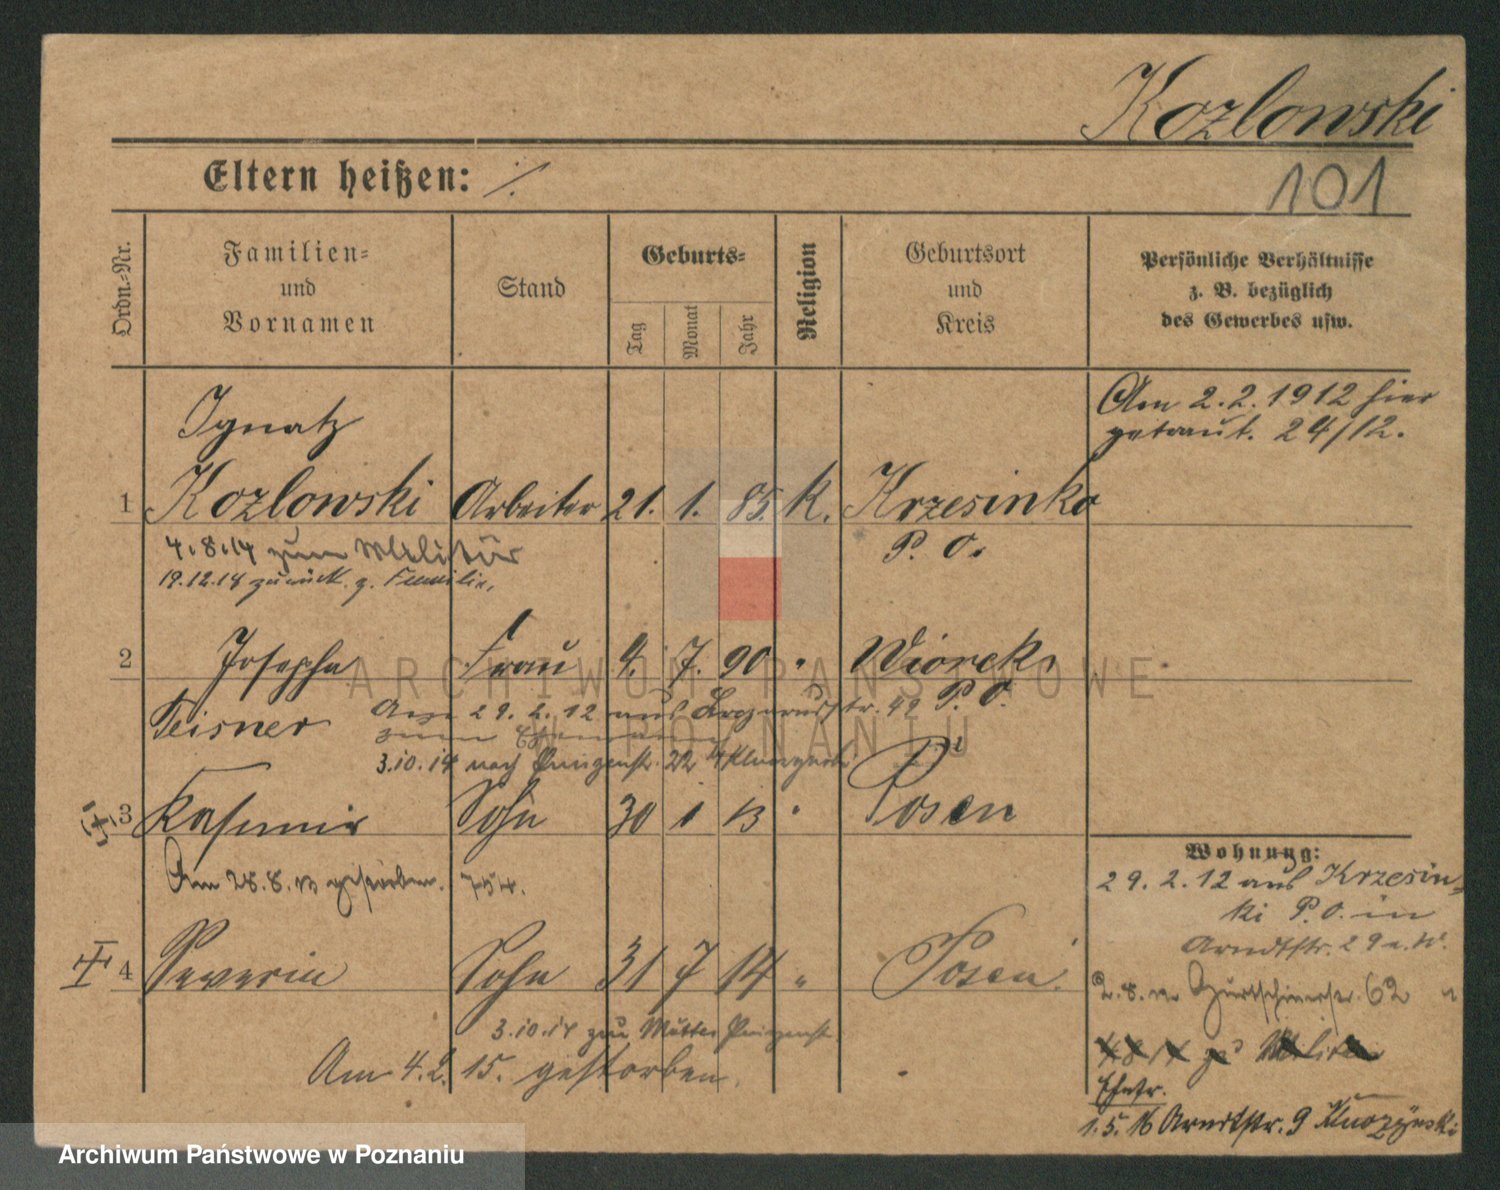 Kozlowski
Eltern heißen: ./.
101
Ordn.-Nr.
Familien- und Vornamen
Stand
Geburts-
Tag
Monat
Jahr
Religion
Geburtsort und Kreis
Persönliche Verhältnisse
z. B. bezüglich
des Gewerbes usw.
Am 2.2.1912 hier
getraut. 24/12.
Ignatz
1 Kozlowski Arbeiter 21. 1. 85. K. Krzesinko
P. O.
4.8.14 zum Militär
19.12.18 zurück z. Familie.
2 Josepha Frau 4. 7. 90 " Wiorek,
P. O.
Teisner
Am 29.2.12 aus
str. 49
zum Ehemann
3.10.14 nach 22
3 Kasimir Sohn 30 1 13 " Posen
Am 28.8.13 gestorben. 754.
4 Severin Sohn 31 7 14 " Posen.
3.10.14 zur Mutter
Am 4.2.15. gestorben.
Wohnung:
29.2.12 aus Krzesin-
ki P. O. in
Arndtstr. 29
62
1.5.16 Arndtstr. 9
ARCHIWUM PAŃSTWOWE
W POZNANIU
Archiwum Państwowe w Poznaniu